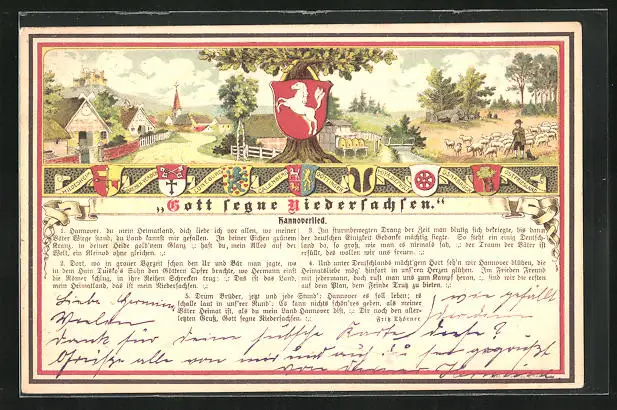 „Gott segne Niedersachsen.“
Hannoverlied.
1. Hannover, du mein Heimatland, dich liebe ich vor allen, wo meiner
Väter Wiege stand, du Land kannst mir gefallen. In deiner Eichen grünem
Kranz, in deiner Heide gold'nem Glanz ,: hast du, mein Alles auf der
Welt, ein Kleinod ohne gleichen. :,:
2. Dort, wo in grauer Vorzeit schon den Ur und Bär man jagte, wo
in dem Hain Tuisko's Sohn den Göttern Opfer brachte, wo Hermann einst
die Römer schlug, in ihre Reihen Schrecken trug: ,: Das ist das Land,
mein Heimatland, das ist mein Niedersachsen. :,:
3. In sturmbewegten Drang der Zeit man blutig sich bekriegte, bis dann
der deutschen Einigkeit Gedanke mächtig siegte. So sieht ein einig Deutsch-
land da, so groß, wie man es niemals sah, ,: der Traum der Väter ist
erfüllt, des wollen wir uns freuen. :,:
4. Und unter Deutschlands mächt'gem Hort seh'n wir Hannover blühen, die
Heimatsliebe mög' hinfort in uns'ren Herzen glühen. Im Frieden Freund
mit jedermann, doch ruft man uns zum Kampf heran, ,: sind wir die ersten
auf dem Plan, dem Feinde Trutz zu bieten. :,:
5. Drum Brüder, jetzt und jede Stund': Hannover es soll leben; es
schalle laut in uns'rer Rund': Es kann nichts schön'res geben, als meiner
Väter Heimat ist, als du mein Land Hannover bist. ,: Dir noch den aller-
letzten Gruß, Gott segne Niedersachsen. :,:
Fritz Thörner
Liebe
wie gefällt
Vielen
dir denn
dank für deine hübsche Karte, diese?
Grüße alle von mir und auch du sei gegrüßt
von deiner